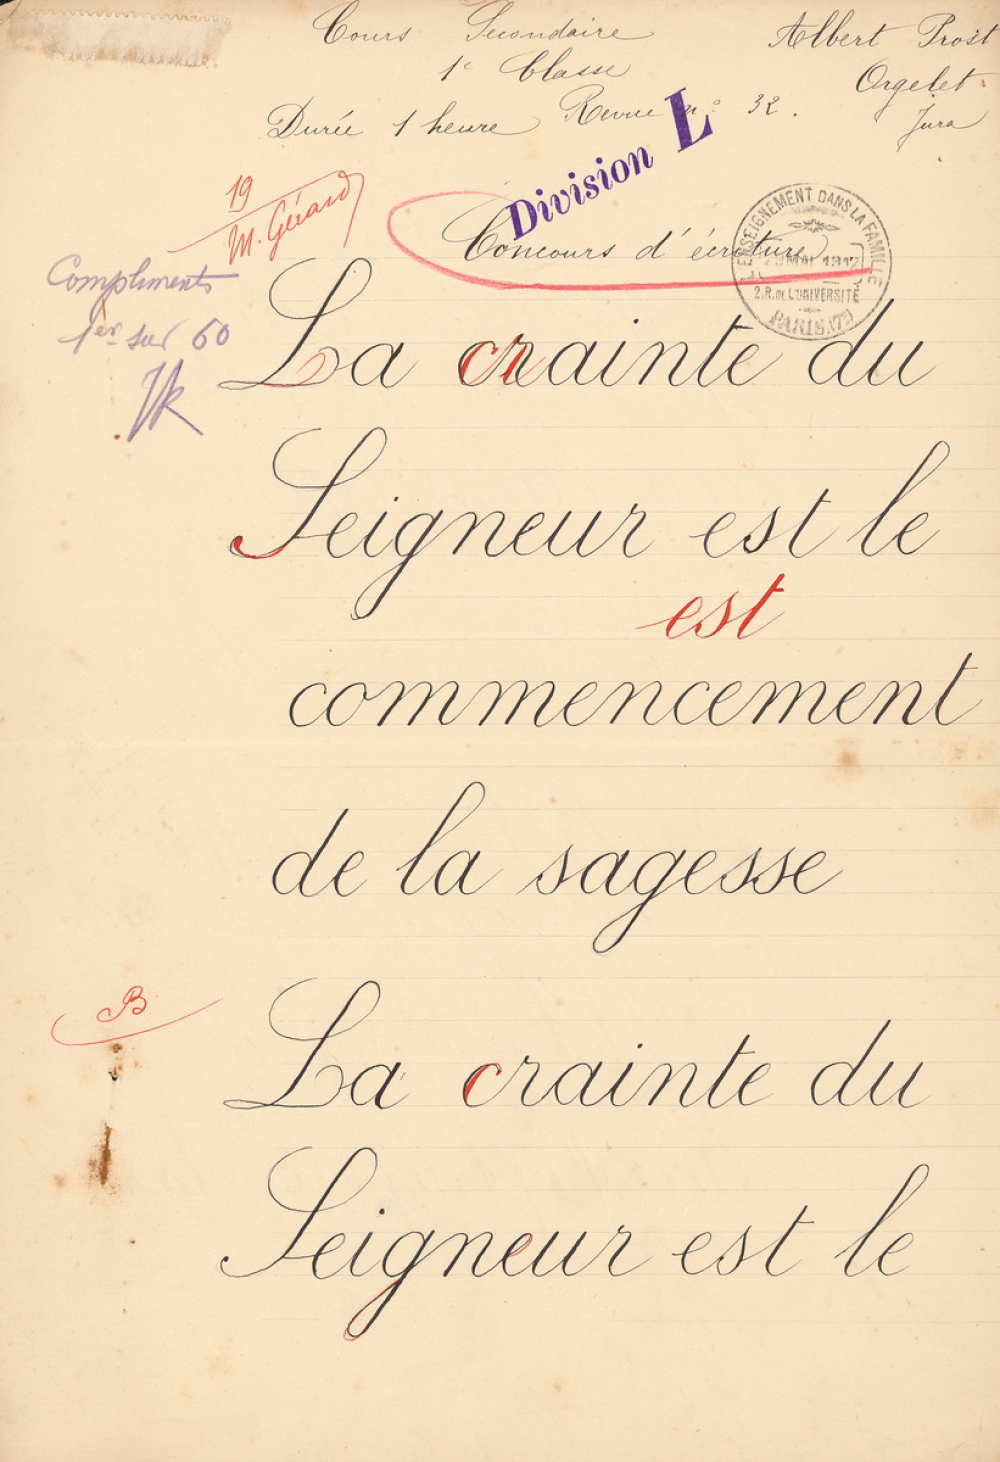 Cours Secondaire Albert Prost
1e Classe Orgelet
Durée 1 heure Revue n° 32. Jura
Division L
19
M. Gérard
Concours d'écriture
L'ENSEIGNEMENT DANS LA FAMILLE
MAI 1917
2.R. DE L'UNIVERSITÉ
PARIS (7e)
Compliments
1er sur 60
La crainte du
Seigneur est le
est
commencement
de la sagesse
B
La crainte du
Seigneur est le